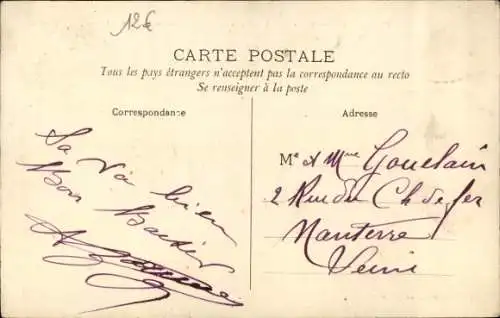 12€
CARTE POSTALE
Tous les pays étrangers n'acceptent pas la correspondance au recto
Se renseigner à la poste
Correspondance
Adresse
Sa va bien
Bon Baiser
Mr & Mme Gouelain
2 Rue du Ch de fer
Nanterre
Seine